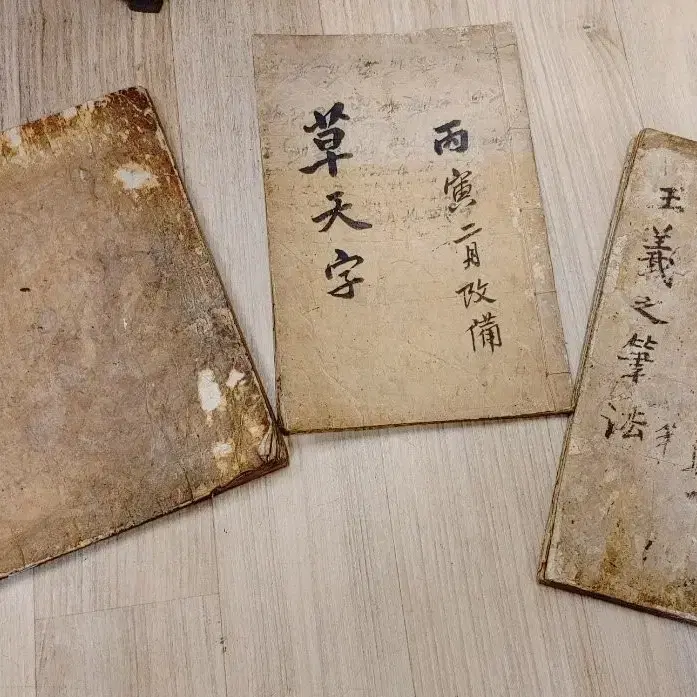 丙寅二月改備
草天字
王羲之筆法
筆